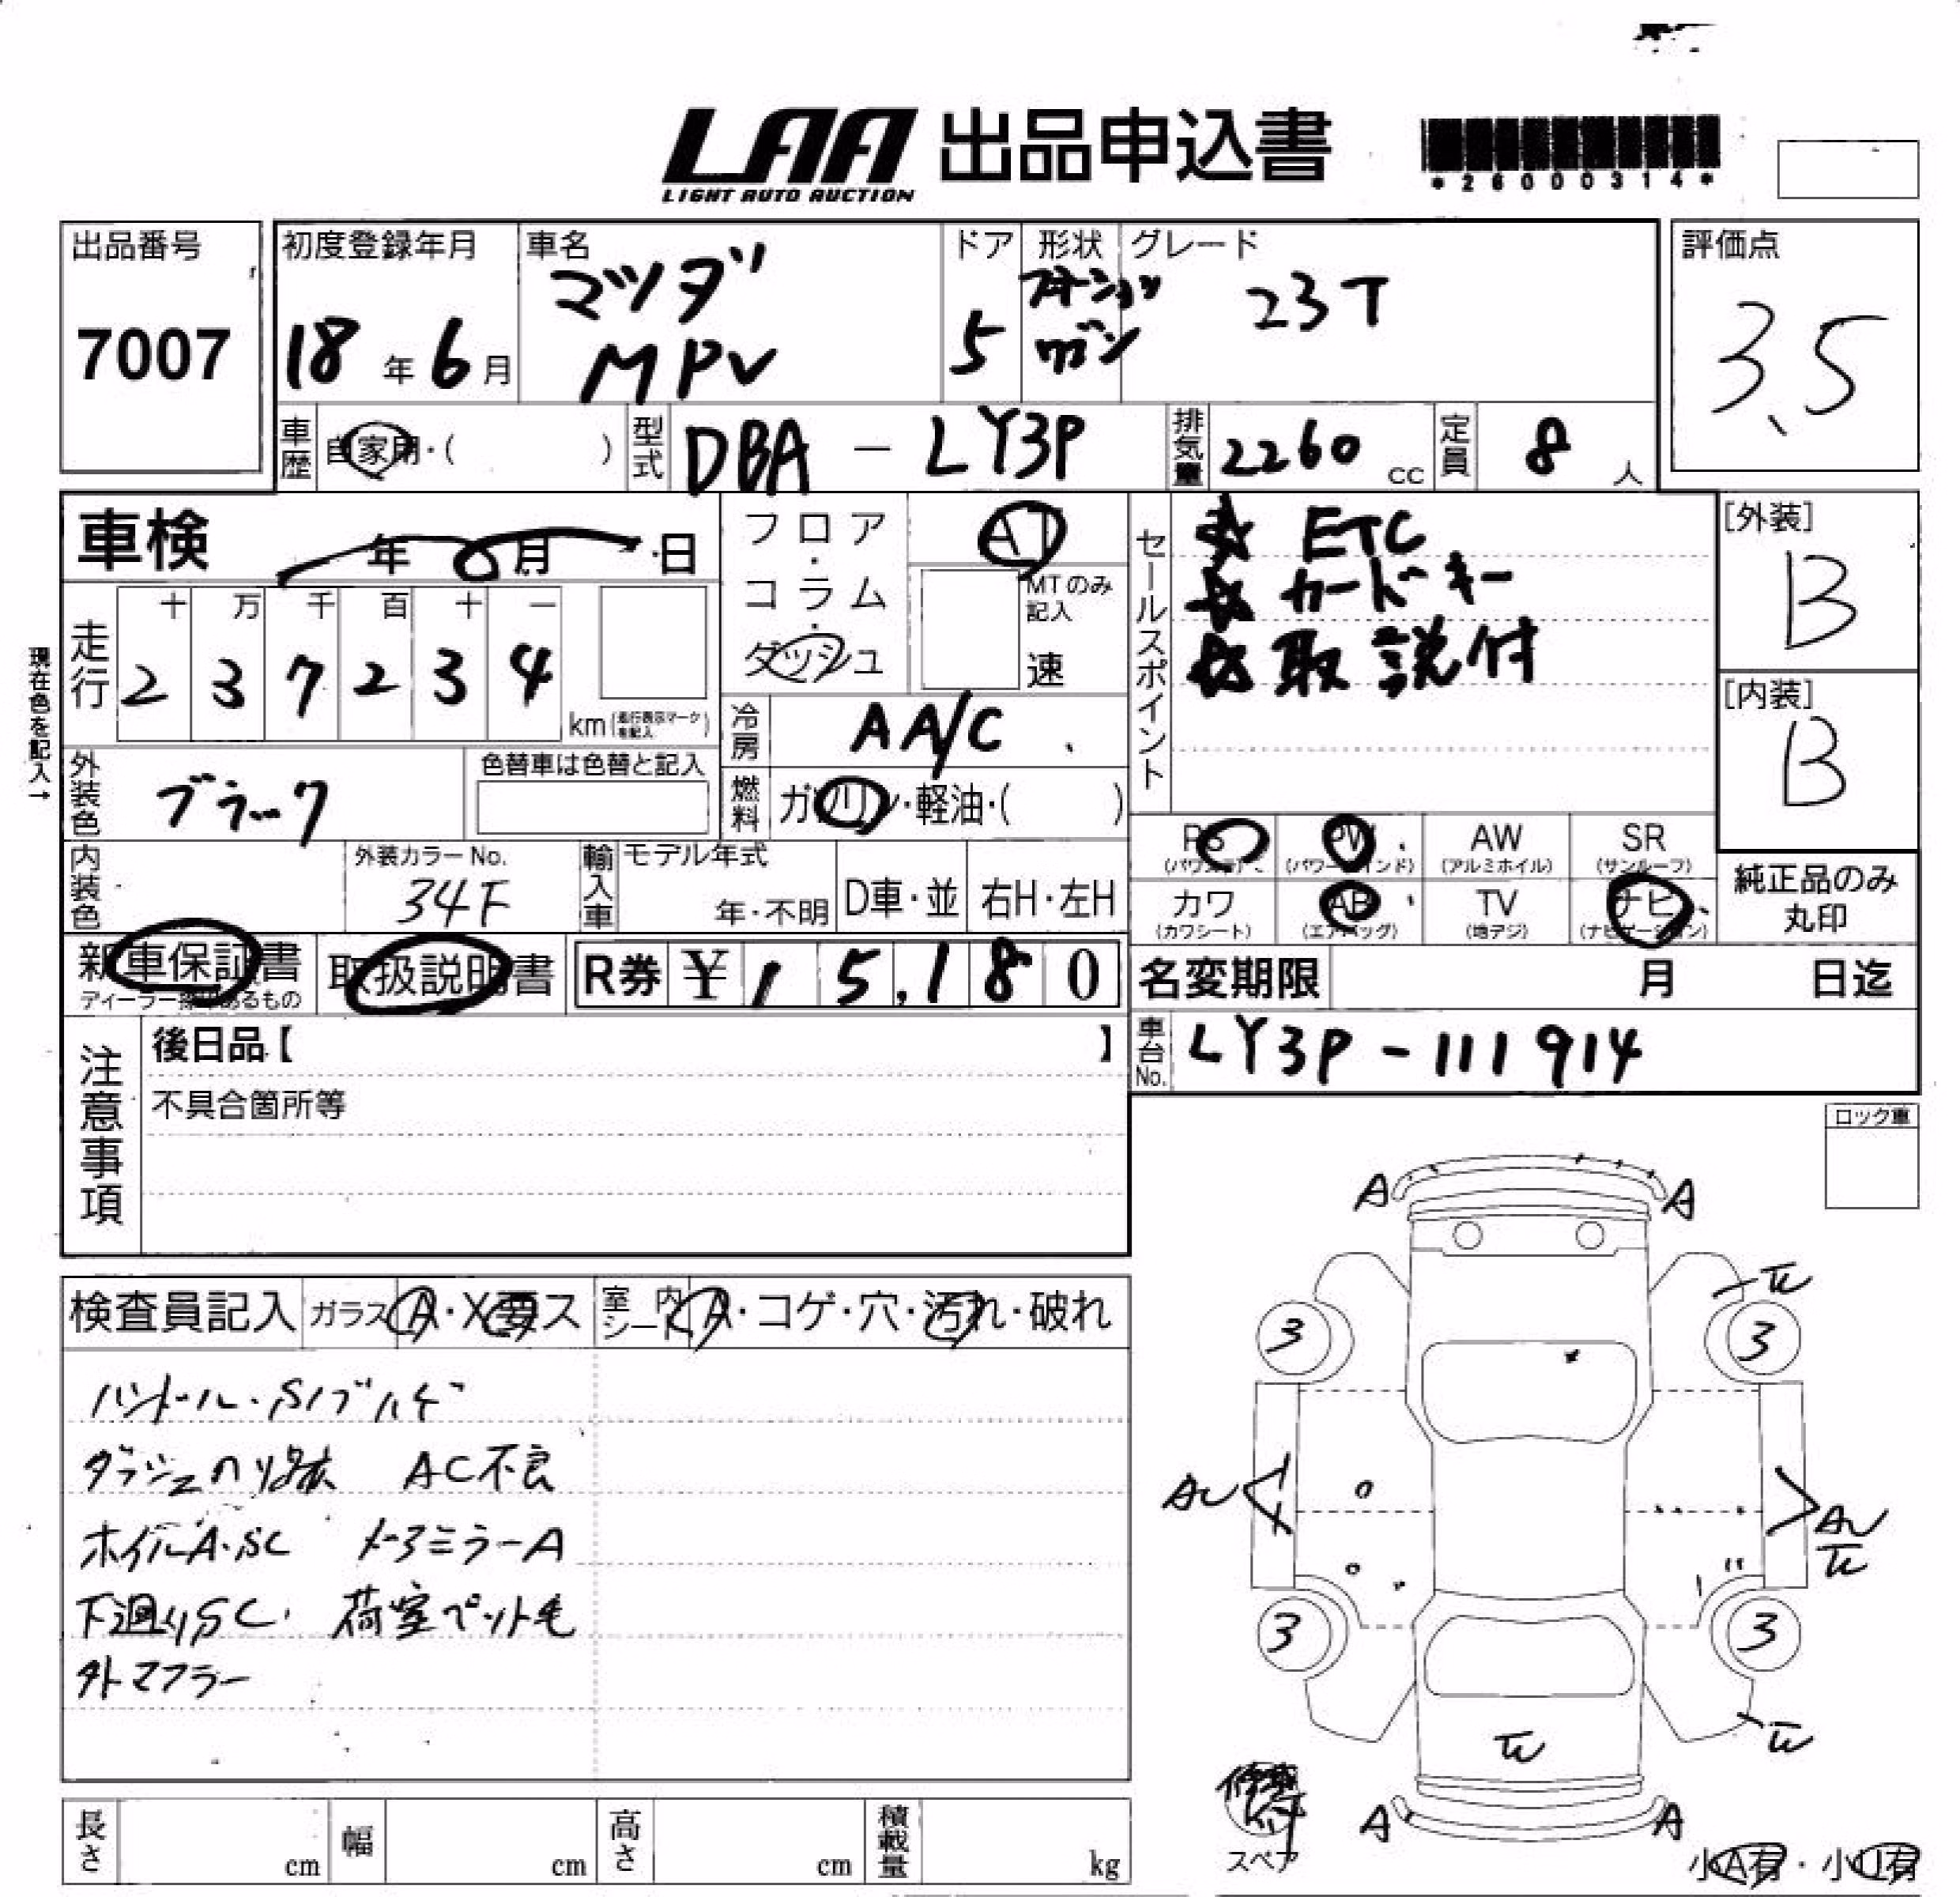 LAA 出品申込書
LIGHT AUTO AUCTION
*26000314*
出品番号
7007
初度登録年月
18年6月
車名
マツダ
MPV
ドア
5
形状
ワゴン
グレード
23T
評価点
3.5
車歴 自家用・( )
型式 DBA - LY3P
排気量 2260 cc
定員 8 人
車検 年 月 日
フロア・コラム・ダッシュ
AT
MTのみ記入
速
セールスポイント
☆ ETC
☆ カードキー
☆ 取説付
[外装]
B
[内装]
B
現在色を記入→
走行
十 万 千 百 十 一
2 3 7 2 3 4
km(走行表示マークを記入)
冷房 AA/C
燃料 ガソリン・軽油・( )
外装色 ブラック
色替車は色替と記入
内装色
外装カラーNo.
34F
輸入車
モデル年式
年・不明
D車・並
右H・左H
PS (パワステ)
PW (パワーウインド)
AW (アルミホイル)
SR (サンルーフ)
カワ (カワシート)
AB (エアバッグ)
TV (地デジ)
ナビ (ナビゲーション)
純正品のみ
丸印
新車保証書
ディーラー捺印あるもの
取扱説明書
R券 ¥ 15,180
名変期限 月 日迄
車台No. LY3P-111914
注意事項
後日品【 】
不具合箇所等
ロック車
検査員記入
ガラス A・X要ス
室内シート A・コゲ・穴・汚れ・破れ
ハンドル・S/ブハゲ
ダッシュのり跡 AC不良
ホイルA・SC ドアミラーA
下廻りSC、 荷室ペット毛
外マフラー
A A
3 3
AU AU
3 3
A A
スペア
小A有・小U有
長さ cm
幅 cm
高さ cm
積載量 kg